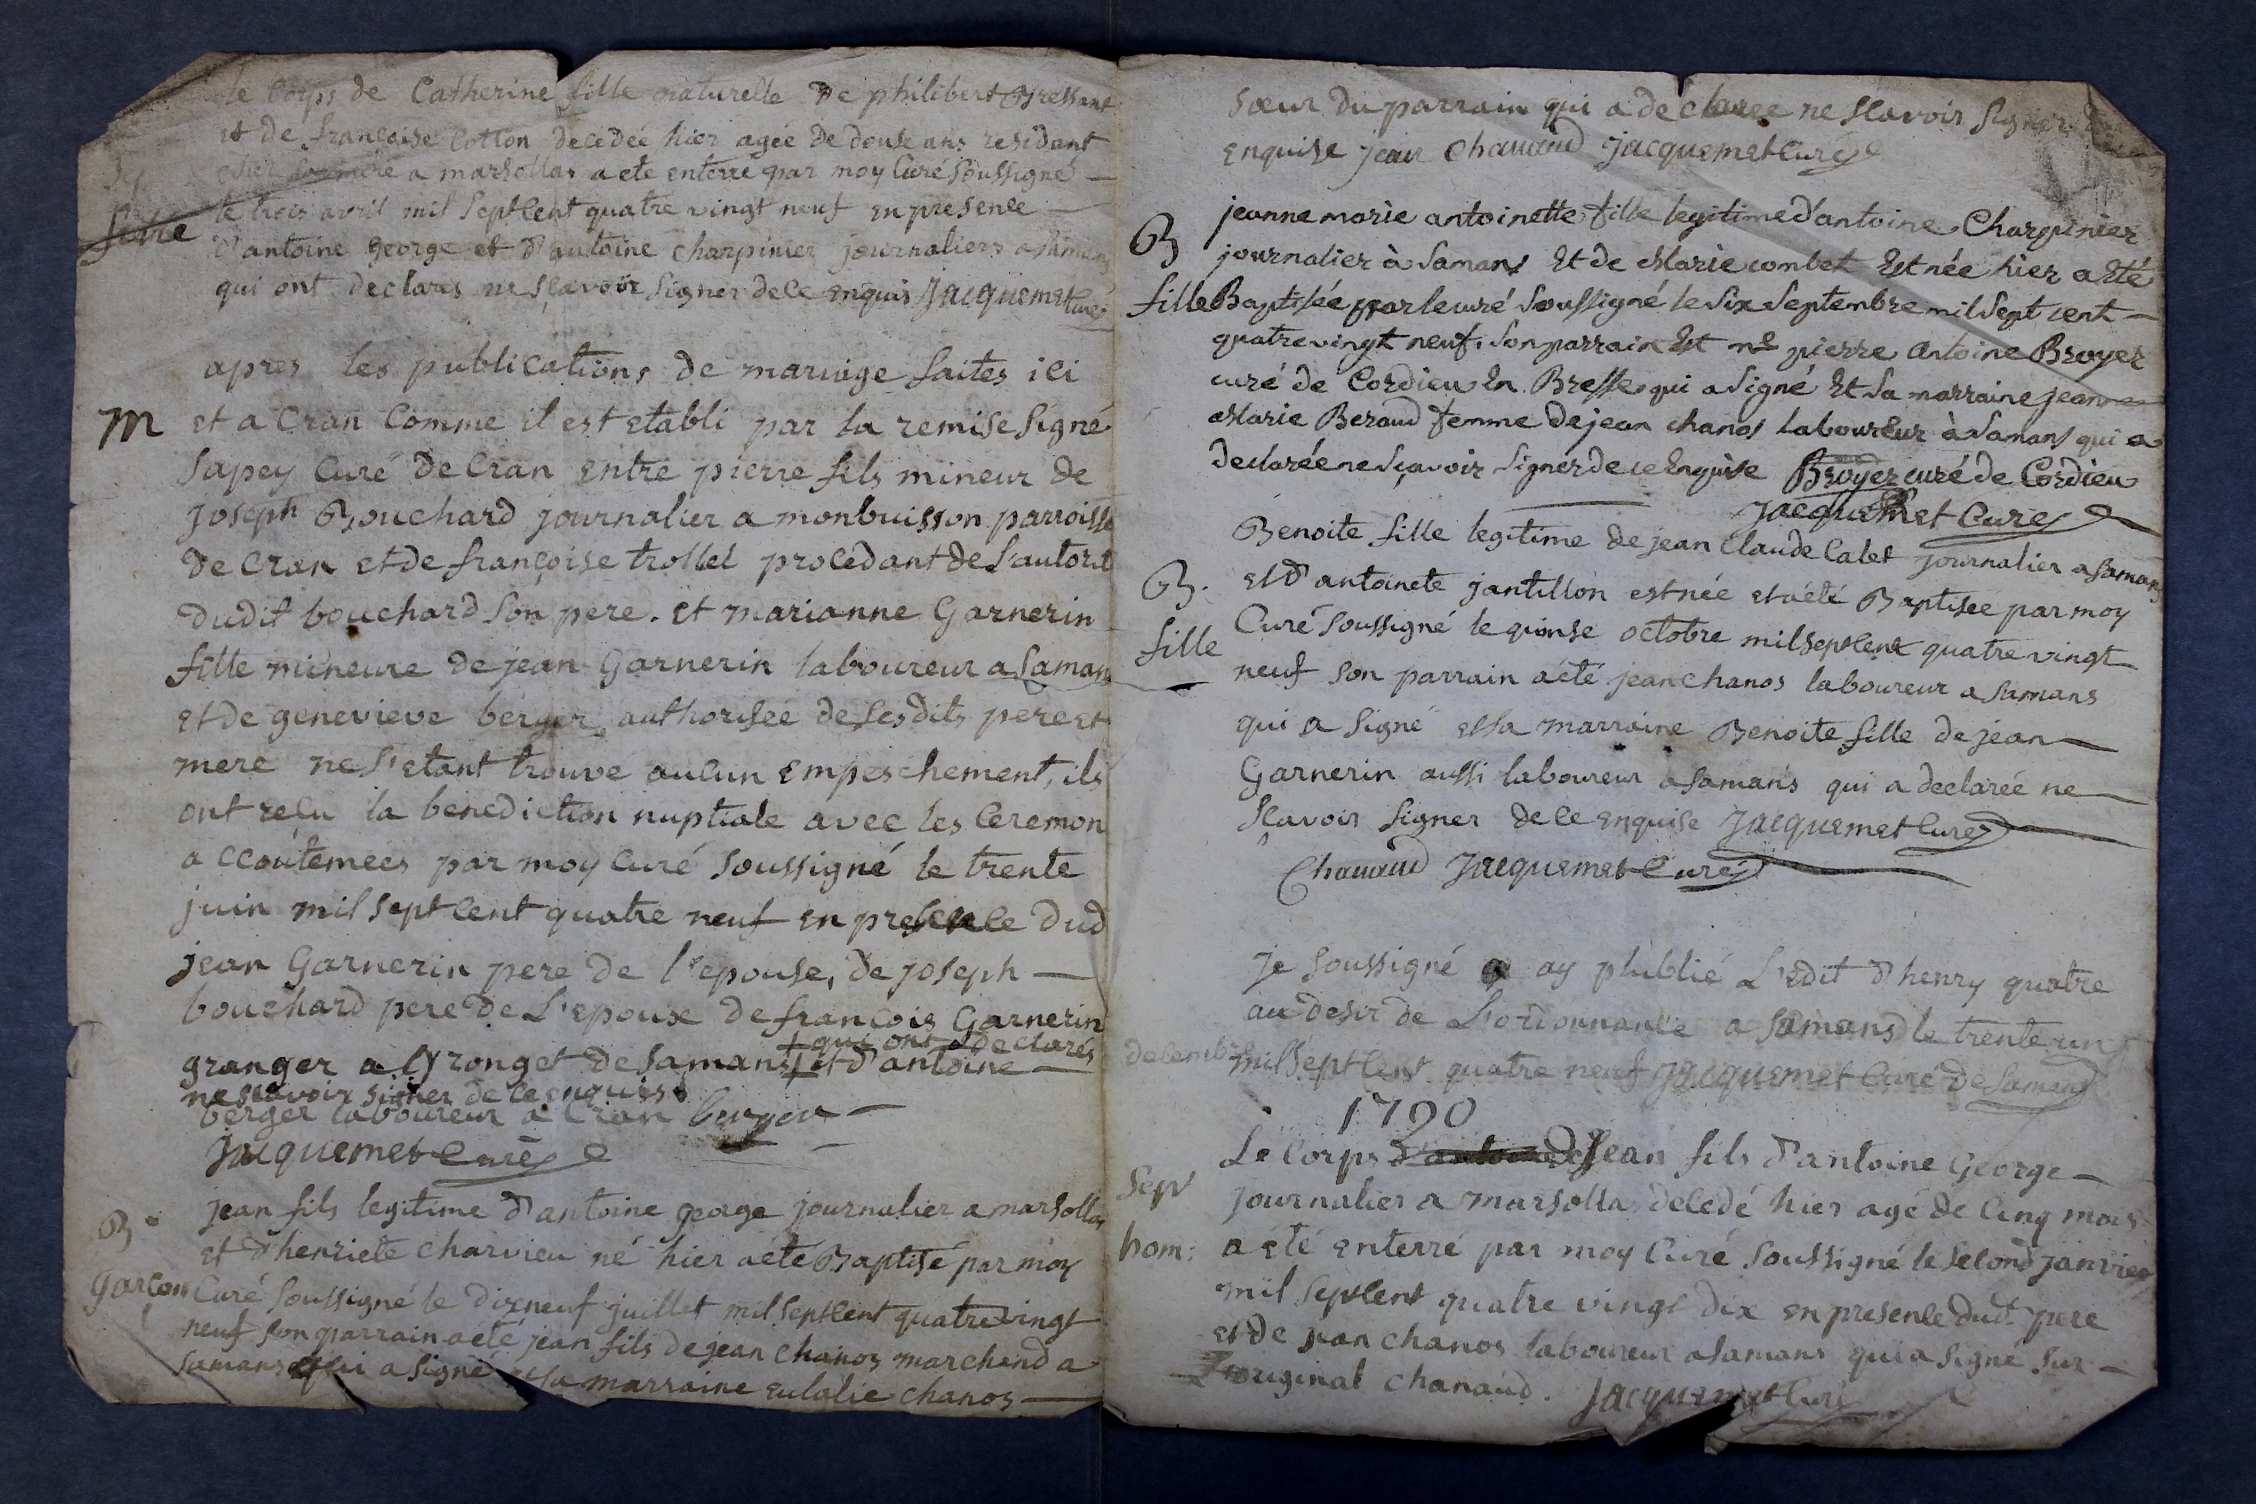 le Corps de Catherine fille naturelle de philibert Bressant
et de françoise Cotton decedée hier agée de douse ans residant
chez sa mere a marsollas a ete enterré par moy Curé soussigné
fille
le trois avril mil septcent quatre vingt neuf en presence
d'antoine george et d'antoine charpinier journaliers a samans
qui ont declarés ne sçavoir signer de ce enquis Jacquemet Curé
apres les publications de mariage faites ici
M
et a Cran Comme il est etabli par la remise signé
sapey Curé de Cran entre pierre fils mineur de
joseph Bouchard journalier a monbuisson parroisse
de Cran et de françoise trollet procedant de l'autorit
dudit bouchard son pere. et marianne Garnerin
fille mineure de jean Garnerin laboureur a samans
et de genevieve berger authorisée de sesdits pere et
mere ne s'etant trouve aucun empeschement, ils
ont reçu la benediction nuptiale avec les Ceremon
accoutemees par moy Curé soussigné le trente
juin mil septcent quatre neuf en presence dud
jean Garnerin pere de l'epouse, de joseph
bouchard pere de L'epoux de françois Garnerin
+ qui ont declarés
granger a Gronget de samans + et d'antoine
ne scavoir signer de ce enquis
berger laboureur a Cran berger
Jacquemet Curé
jean fils legitime d'antoine george journalier a marsollas
B
et d'henriete charvieu né hier a été Baptisé par moy
garcon
Curé soussigné le dixneuf juillet mil septcent quatre vingt
neuf son parrain a été jean fils de jean chanos marchand a
samans qui a signé et sa marraine eulalie chanos
sœur du parrain qui a declaree ne scavoir signer
enquise jean Chanaud Jacquemet Curé
jeanne marie antoinette fille legitime d'antoine Charpinier
B
journalier à samans Et de Marie combet Est née hier a Eté
fille
Baptisée par le curé soussigné le six septembre mil sept cent
quatre vingt neuf, son parrain Est mre pierre antoine Broyer
curé de Cordieu En Bresse qui a signé Et sa marraine jeanne
Marie Beraud femme de jean chanos laboureur à samans qui a
declarée ne sçavoir signer de ce Enquise Broyer curé de Cordieu
Jacquemet Curé
Benoite fille legitime de jean Claude Calet journalier a samans
B.
et d'antoinete jantillon est née et a été Baptisée par moy
fille
Curé soussigné le quinse octobre mil septcent quatre vingt
neuf son parrain a été jean chanos laboureur a samans
qui a signé et sa marraine Benoite fille de jean
Garnerin aussi laboureur a samans qui a declarée ne
scavoir signer de ce enquise Jacquemet Curé
Chanaud Jacquemet Curé
Je soussigné ay plublié L'edit d'henry quatre
au desir de L'ordonnance a samans le trente un
decembre
mil septcent quatre neuf Jacquemet Curé de samans
1790
Le Corps de Jean fils d'antoine George
sep
journalier a marsollas decedé hier agé de Cinq mois
hom:
a été enterré par moy Curé soussigné le second janvier
mil septcent quatre vingt dix en presence dudt pere
et de jean chanos laboureur a samans qui a signé sur
L'original chanaud. Jacquemet Curé